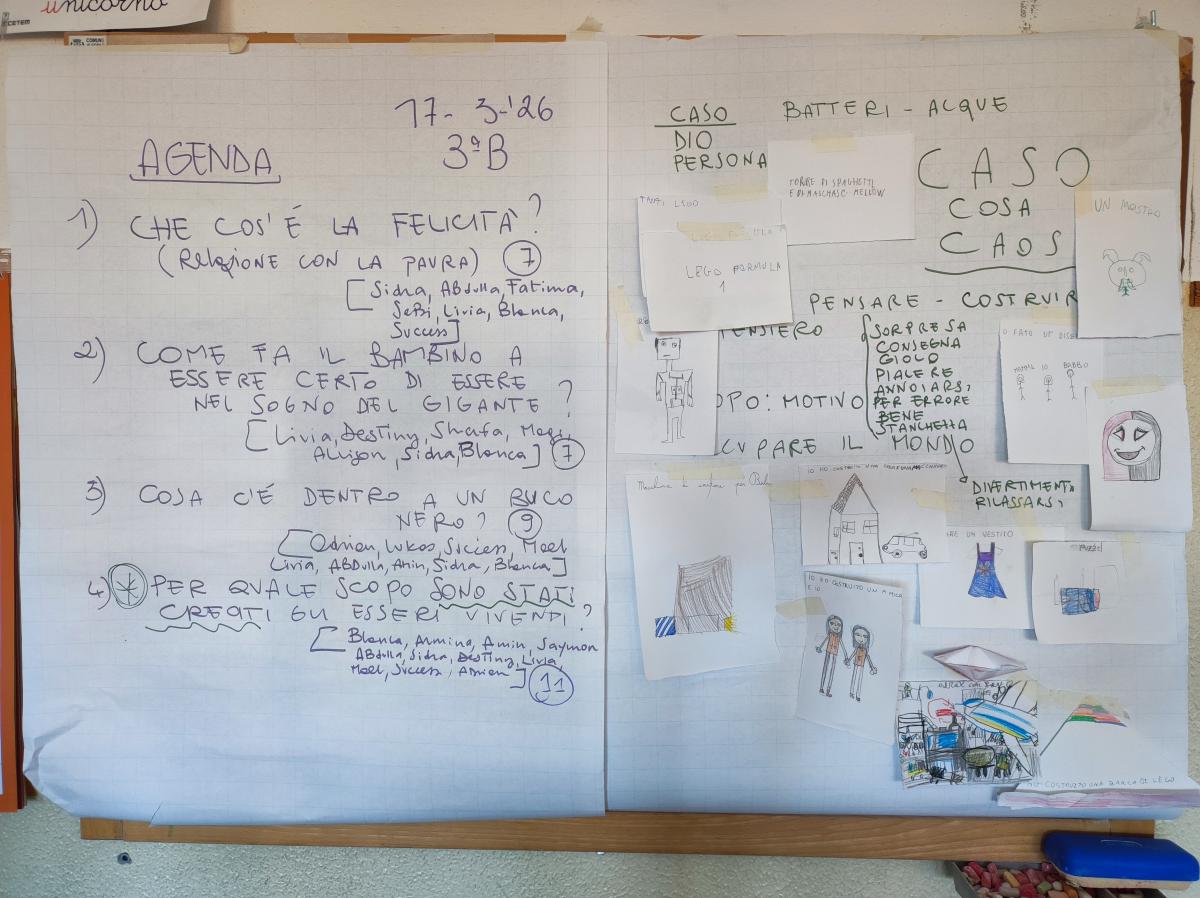 unicorno
CETEM
17-3-'26
3ªB
AGENDA
1) CHE COS'È LA FELICITÀ?
(Relazione CON LA PAURA) 7
[Sidra, Abdulla, Fatima,
Sebi, Livia, Blanca,
Success]
2) COME FA IL BAMBINO A
ESSERE CERTO DI ESSERE
NEL SOGNO DEL GIGANTE?
[Livia, Destiny, Shafa,
Sidra, Blanca] 7
3) COSA C'È DENTRO A UN BUCO
NERO? 9
[Adrien, Lukas, Success, Mael
Livia, ABDulla, Amin, Sidra, Blanca]
4) * PER QUALE SCOPO SONO STATI
CREATI GLI ESSERI VIVENTI?
[Blanca, Armina, Amin, Saymon
ABdulla, Sidra, Destiny, Livia,
Mael, Success, Adrien]
11
CASO
DIO
PERSONA
BATTERI - ACQUE
CASO
COSA
CAOS
TORRE DI SPAGHETTI
E DI
LEGO FORMULA
1
UN MOSTRO
PENSARE - COSTRUIR
PENSIERO
SORPRESA
CONSEGNA
GIOCO
PIACERE
ANNOIARSI
PER ERRORE
BENE
STANCHEZZA
OPO: MOTIVO
CUPARE IL MONDO
DIVERTIMENTO
RILASSARSI
O FATO UN DISE
MAMMA IO BABBO
IO HO COSTRUITO UNA
RE UN VESTITO
PUZZLE
IO HO COSTRUITO UN AMICO
E IO
COSTRUITO UNA BARCA DI LEGO